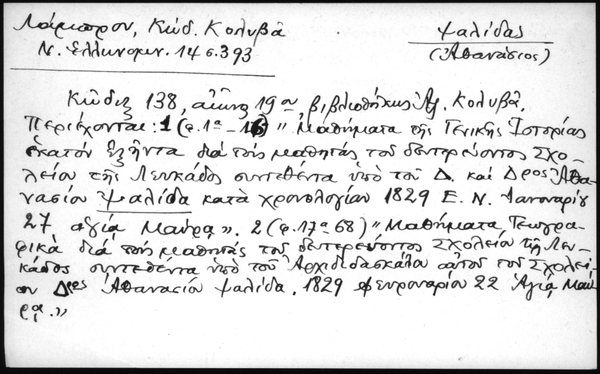 Λάμπρου, Κώδ. Κολυβᾶ
Ν. Ἑλληνομν. 14 σ. 393
Ψαλίδας
(Ἀθανάσιος)
Κῶδιξ 138, αἰῶνος 19ου, βιβλιοθήκης Ἀλ. Κολυβᾶ.
Περιέχονται: 1 (φ. 1α – 16) "Μαθήματα τῆς Γενικῆς Ἱστορίας
ἑκατὸν ἑξῆντα διὰ τοὺς μαθητὰς τοῦ δευτερεύοντος Σχο-
λείου τῆς Λευκάδος συντεθέντα ὑπὸ τοῦ Δ. καὶ Δρος Ἀθα-
νασίου Ψαλίδα κατὰ χρονολογίαν 1829 Ε. Ν. Ἰανουαρίου
27, ἁγία Μαύρα". 2 (φ. 17α 68) "Μαθήματα Γεωγρα-
φικὰ διὰ τοὺς μαθητὰς τοῦ δευτερεύοντος Σχολείου τῆς Λευ-
κάδος συντεθέντα ὑπὸ τοῦ Ἀρχιδιδασκάλου αὐτοῦ τοῦ Σχολεί-
ου Δρος Ἀθανασίου Ψαλίδα. 1829 Φευρουαρίου 22 Ἁγίᾳ Μαύ-
ρᾳ."